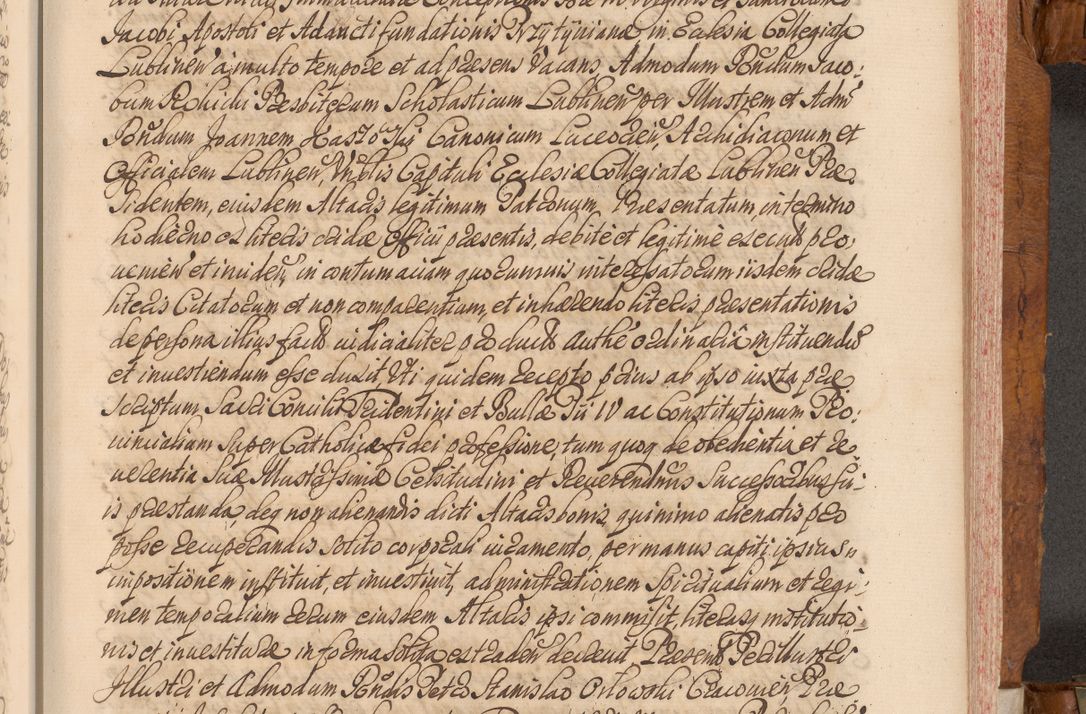 Jacobi Apostoli et Adaucti fundationis Przytyiniana in Eclesia Collegiata
Lublinen a multo tempore et ad praesens Vacans, Admodum Rndum Jaco-
bum Rchichi Presbiterum Scholasticum Lublinen per Illustrem et Adm
Rndum Joannem Canonicum Luceorien, Archidiaconum et
Officialem Lublinen, Vnblis Capituli Eclesiae Collegiatae Lublinen Prae-
sidentem, eiusdem Altaris legitimum Patronum Praesentatum, in termino
hodierno ex literis cridae Officii praesentis, debite et legitime executis pro-
uenien et inciden, in contumaciam quorumuis interessatorum iisdem cridae
literis Citatorum et non comparentium, et inhaerendo literis praesentationis
de persona illius factis iudicialiter productis authe ordinaria instituendum
et inuestiendum esse duxit Vti quidem recepto prius ab ipso iuxta prae-
scriptum Sacri Concilii Tridentini et Bullae Pii IV ac Constitutionum Pro-
uincialium super Catholicae fidei professione, tum quoq de obedientia et re-
uerentia Suae Illustrissimae Celsitudini et Reuerendmis Successoribus su-
is praestanda, deq non alienandis dicti Altaris bonis, quinimo alienatis pro
posse recuperandis solito corporali iuramento, per manus capiti ipsius
impositionem instituit, et inuestiuit, administrationem Spiritualium et regi-
men temporalium rerum eiusdem Altaris ipsi commisit, literasq institutio-
nis et inuestiturae in forma solita extraden decreuit Praesentibus Perillustri
Illustri et Admodum Rndis Petro Stanislao Orlowski Cracovien, Prae